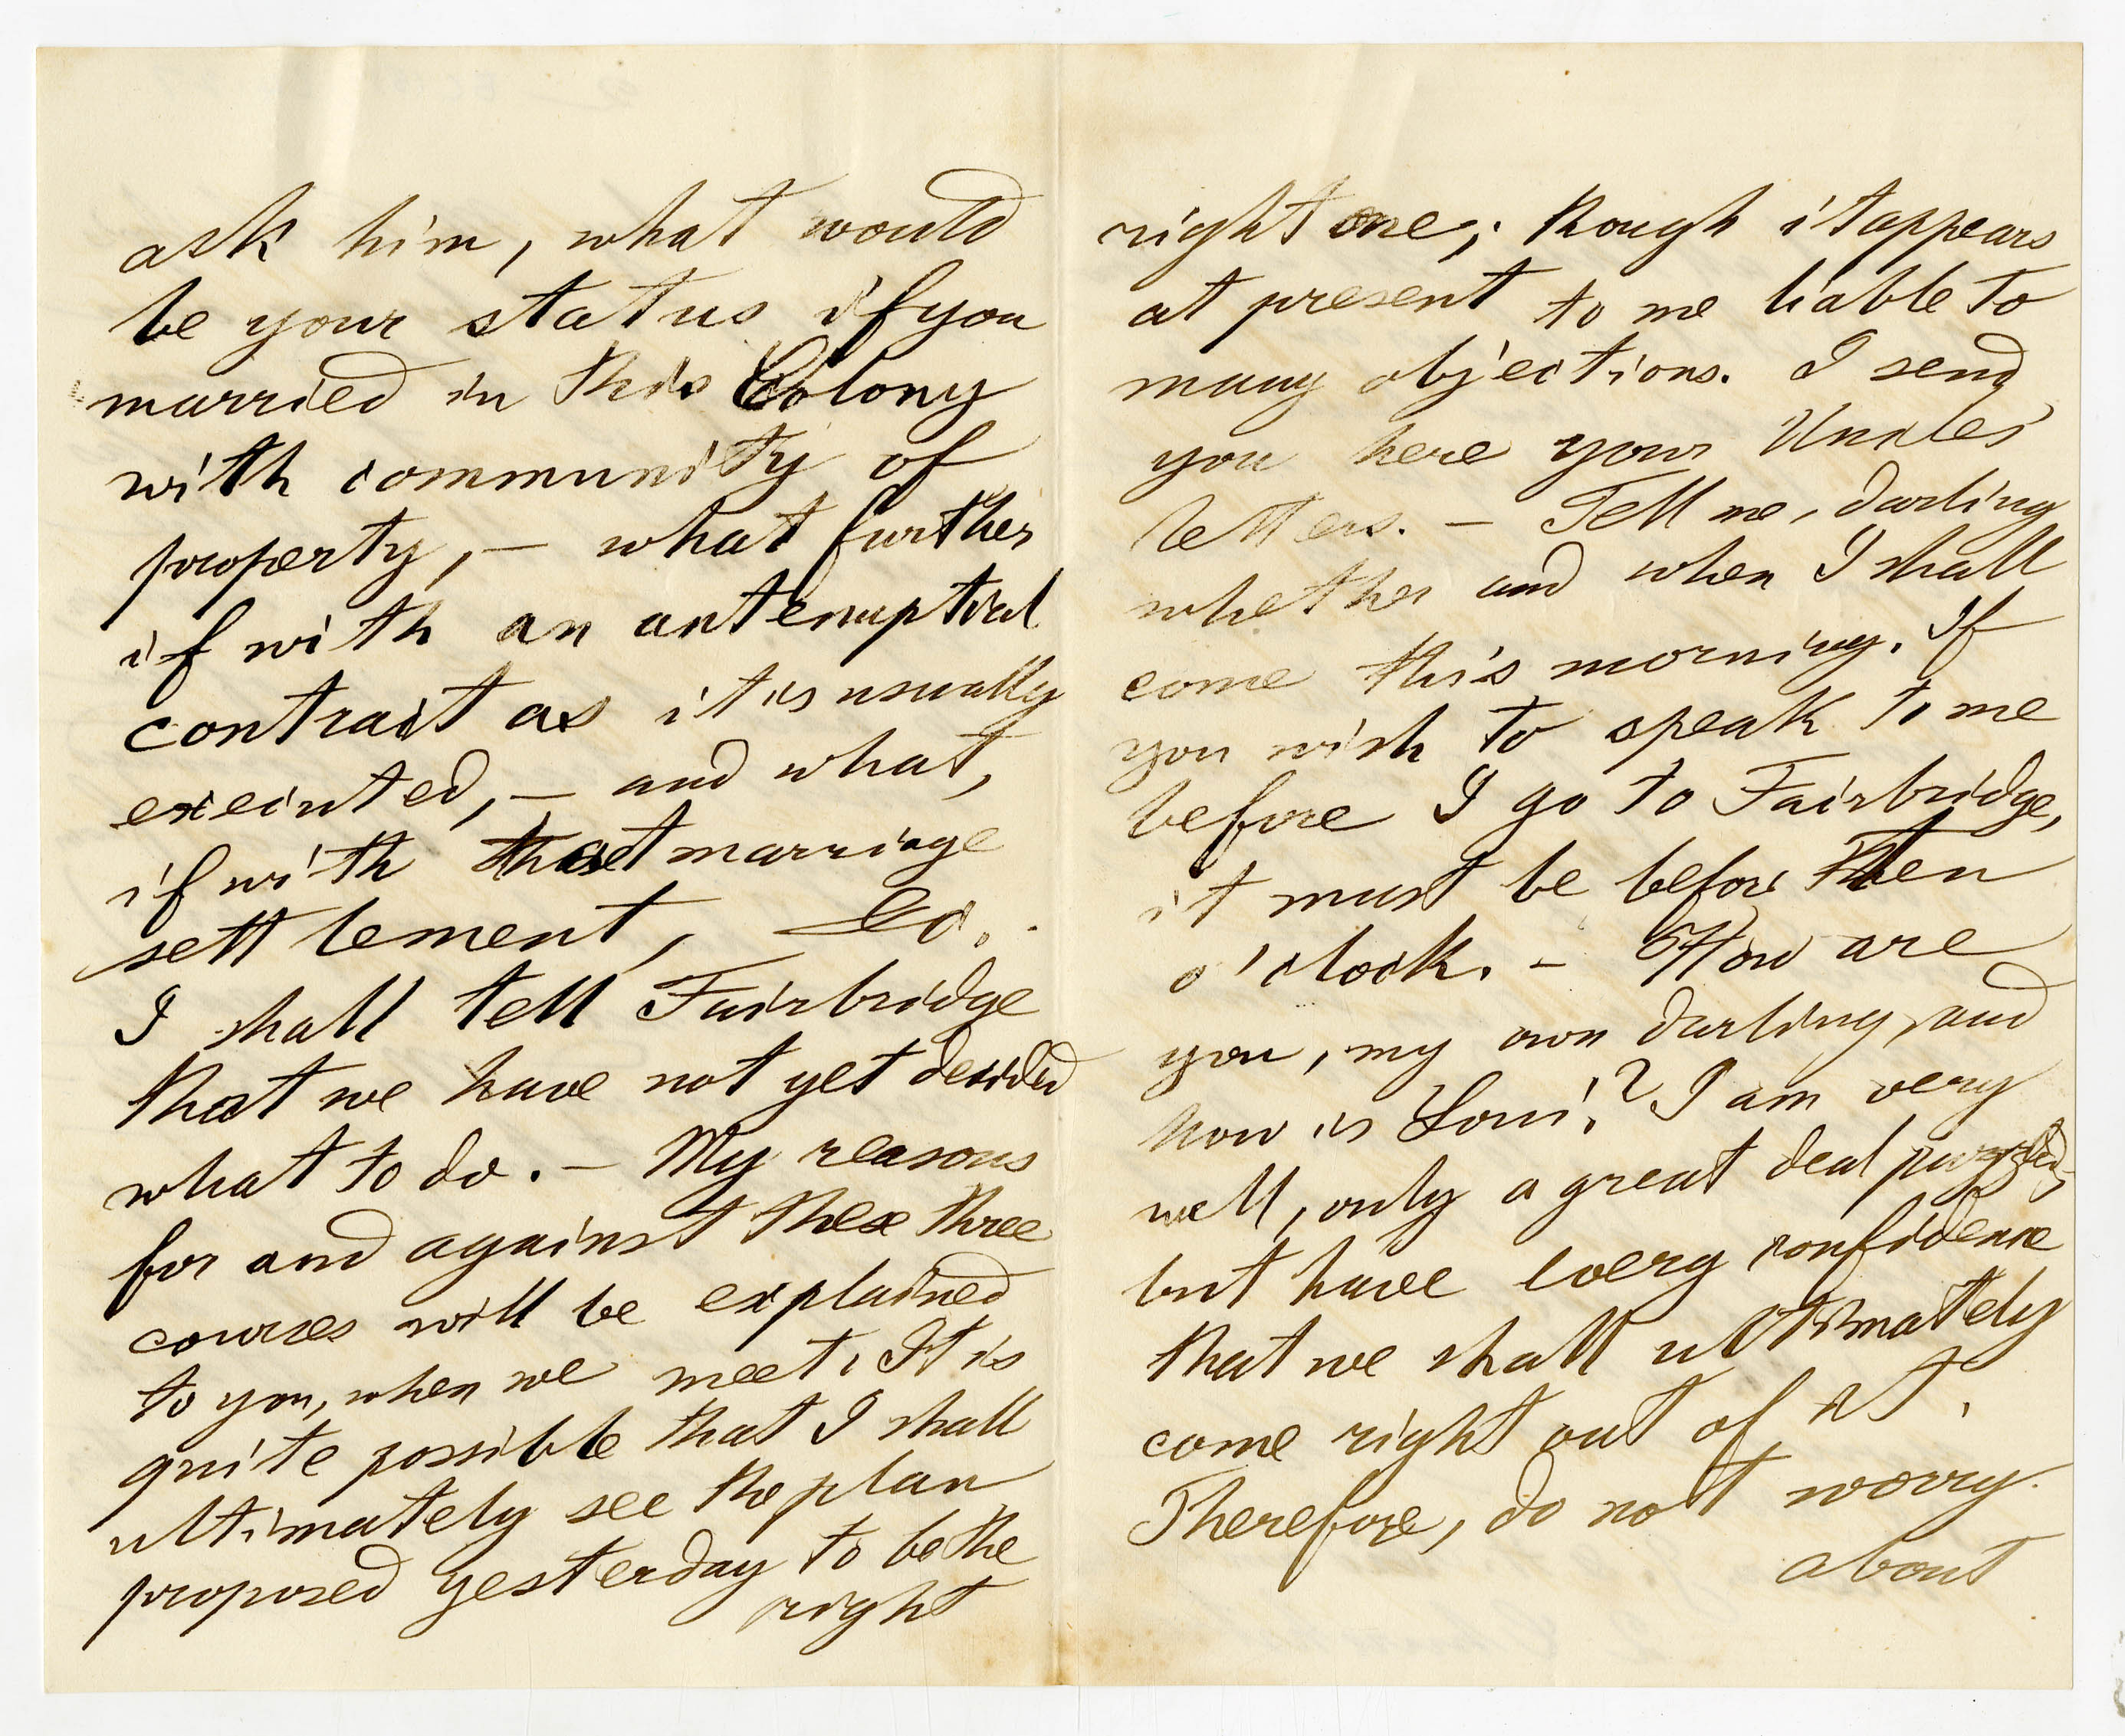 ask him, what would
be your status if you
married in this Colony
with community of
property, — what further
if with an antenuptial
contract as it is usually
executed, — and what,
if with that marriage
settlement, &c.
I shall tell Fairbridge
that we have not yet decided
what to do. — My reasons
for and against these three
courses will be explained
to you, when we meet. It is
quite possible that I shall
ultimately see the plan
proposed yesterday to be the
right
right one; though it appears
at present to me liable to
many objections. I send
you here your Uncles
letters. — Tell me, darling
whether and when I shall
come this morning. If
you wish to speak to me
before I go to Fairbridge,
it must be before ten
o'clock. — How are
you, my own darling, and
how is Loui? I am very
well, only a great deal puzzled,
but have every confidence
that we shall ultimately
come right out of it.
Therefore, do not worry.
about